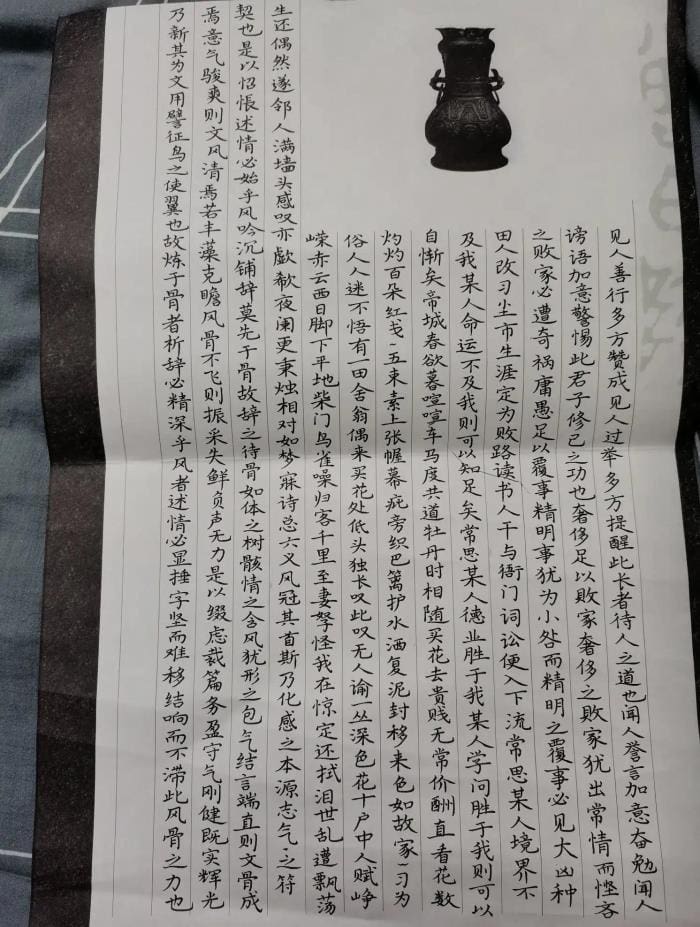 见人善行多方赞成见人过举多方提醒此长者待人之道也闻人誉言加意奋勉闻人
谤语加意警惕此君子修己之功也奢侈足以败家奢侈之败家犹出常情而悭吝
之败家必遭奇祸庸愚足以覆事精明事犹为小咎而精明之覆事必见大凶种
田人改习尘市生涯定为败路读书人干与衙门词讼便入下流常思某人境界不
及我某人命运不及我则可以知足矣常思某人德业胜于我某人学问胜于我则可以
自惭矣帝城春欲暮喧喧车马度共道牡丹时相随买花去贵贱无常价酬直看花数
灼灼百朵红戋々五束素上张幄幕庇旁织巴篱护水洒复泥封移来色如故家々习为
俗人人迷不悟有一田舍翁偶来买花处低头独长叹此叹无人谕一丛深色花十户中人赋峥
嵘赤云西日脚下平地柴门鸟雀噪归客千里至妻孥怪我在惊定还拭泪世乱遭飘荡
生还偶然遂邻人满墙头感叹亦歔欷夜阑更秉烛相对如梦寐诗总六义风冠其首斯乃化感之本源志气之符
契也是以怊怅述情必始乎风吟沉铺辞莫先于骨故辞之待骨如体之树骸情之含风犹形之包气结言端直则文骨成
焉意气骏爽则文风清焉若丰藻克瞻风骨不飞则振采失鲜负声无力是以缀虑裁篇务盈守气刚健既实辉光
乃新其为文用譬征鸟之使翼也故炼于骨者析辞必精深乎风者述情必显捶字坚而难移结响而不滞此风骨之力也